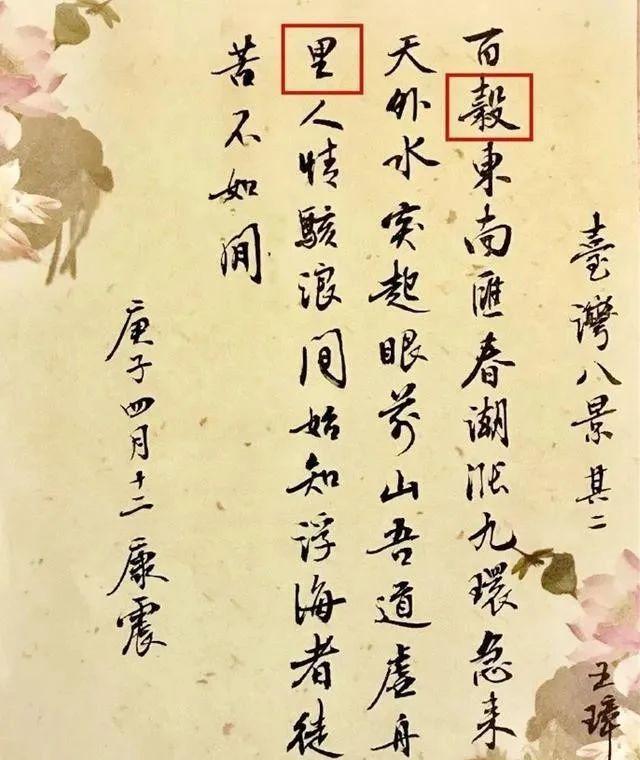 臺灣八景 其二
王璋
百穀東南匯春潮漲九環急来
天外水突起眼前山吾道虚舟
里人情駭浪间始知浮海者徒
苦不如閒
庚子四月十二 康震